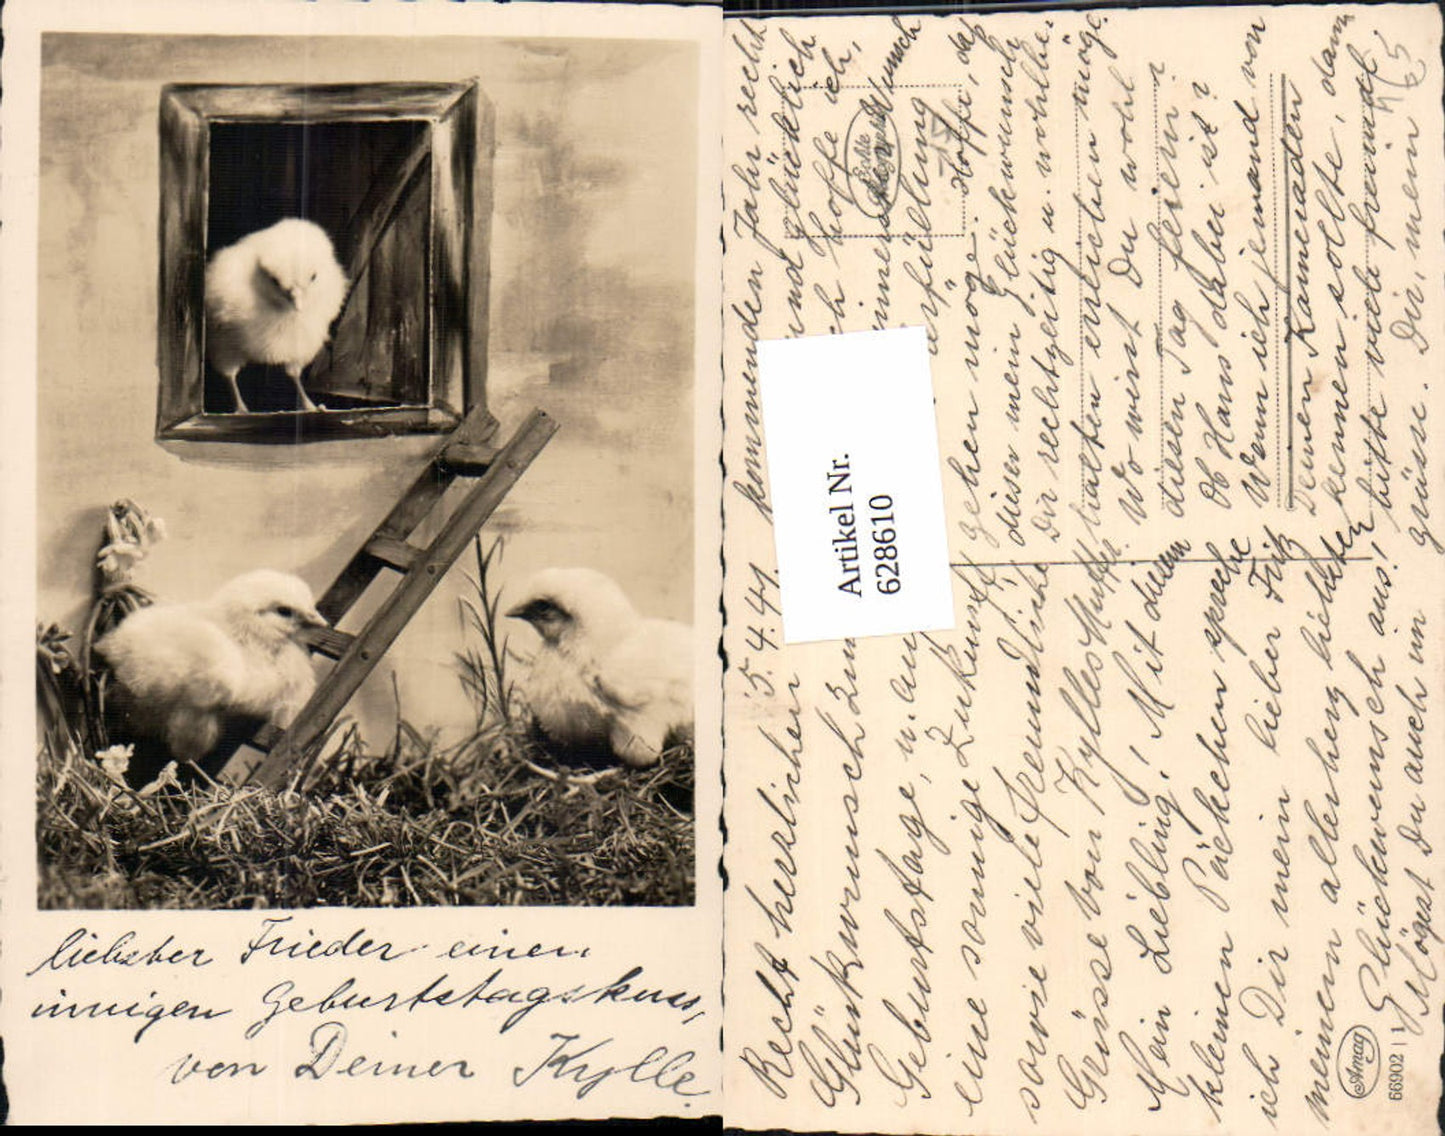 liebster Frieder einen
innigen Geburtstagskuss,
von Deiner Kylle.
Recht herzlichen
Glückwunsch zum
Geburtstage, u. auf
eine sonnige Zukunft
sowie viele freundliche
Grüsse von Kylles Mutti.
Mein Liebling! Mit diesem
kleinen Päckchen spreche
ich Dir mein lieber Fritz
meinen allerherzlichsten
Glückwunsch aus!
Mögest Du auch im
5.4.41.
kommenden Jahr recht
und glücklich
hoffe ich,
Wunsch
erfüllung
gehen möge. Hoffe, daß
dieser mein Glückwunsch
Dir rechtzeitig u. wohlbe-
halten erreichen möge.
Wo wirst Du wohl
diesen Tag feiern?
Ob Hans dabei ist?
Wenn ich jemand von
Deinen Kameraden
kennen sollte, dann
bitte viele freundl.
grüsse. Dir, mein
Artikel Nr.
628610
Echte
Amag
66902 1